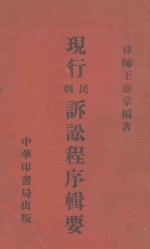 律師王蔚章編著
現行民刑訴訟程序輯要
中華印書局出版